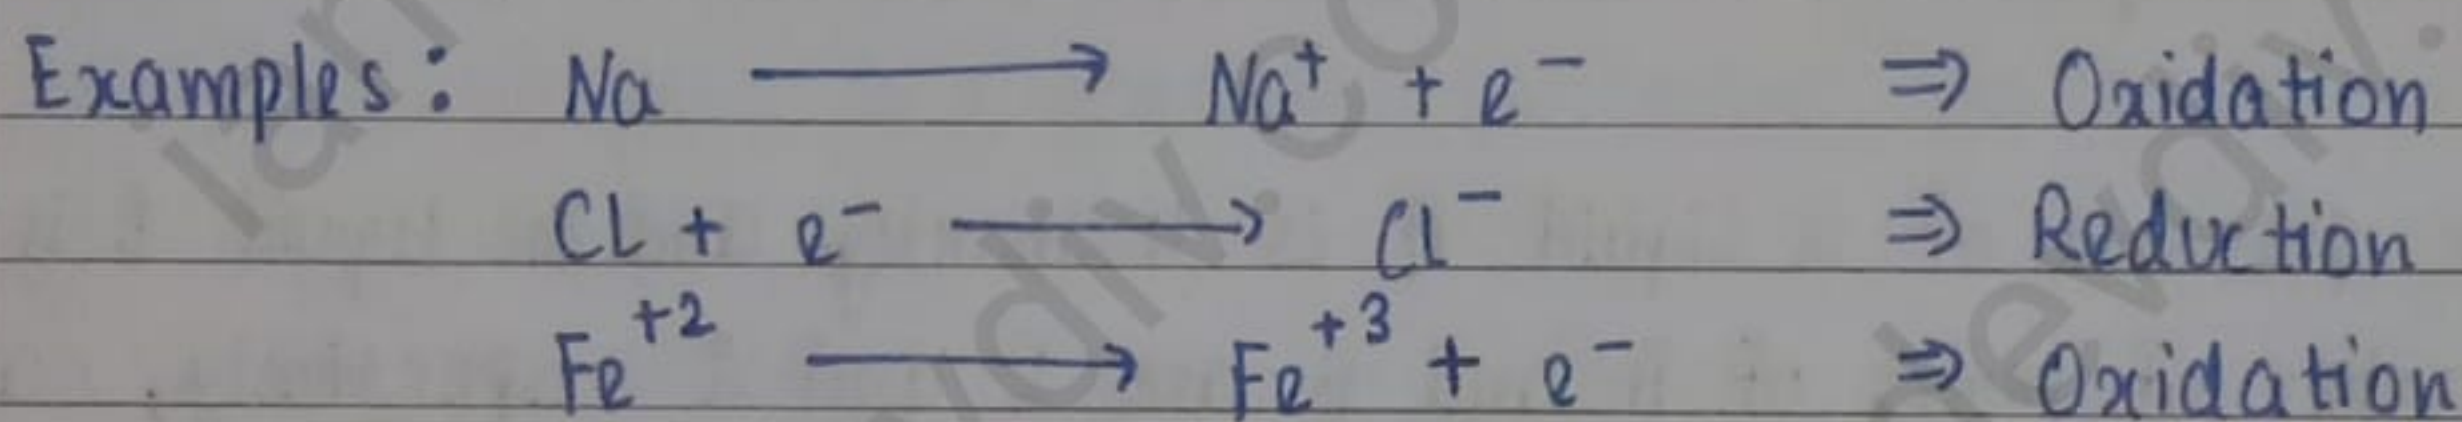 Examples: Na ⟶ Na⁺ + e⁻ ⇒ Oxidation
CL + e⁻ ⟶ Cl⁻ ⇒ Reduction
Fe⁺² ⟶ Fe⁺³ + e⁻ ⇒ Oxidation